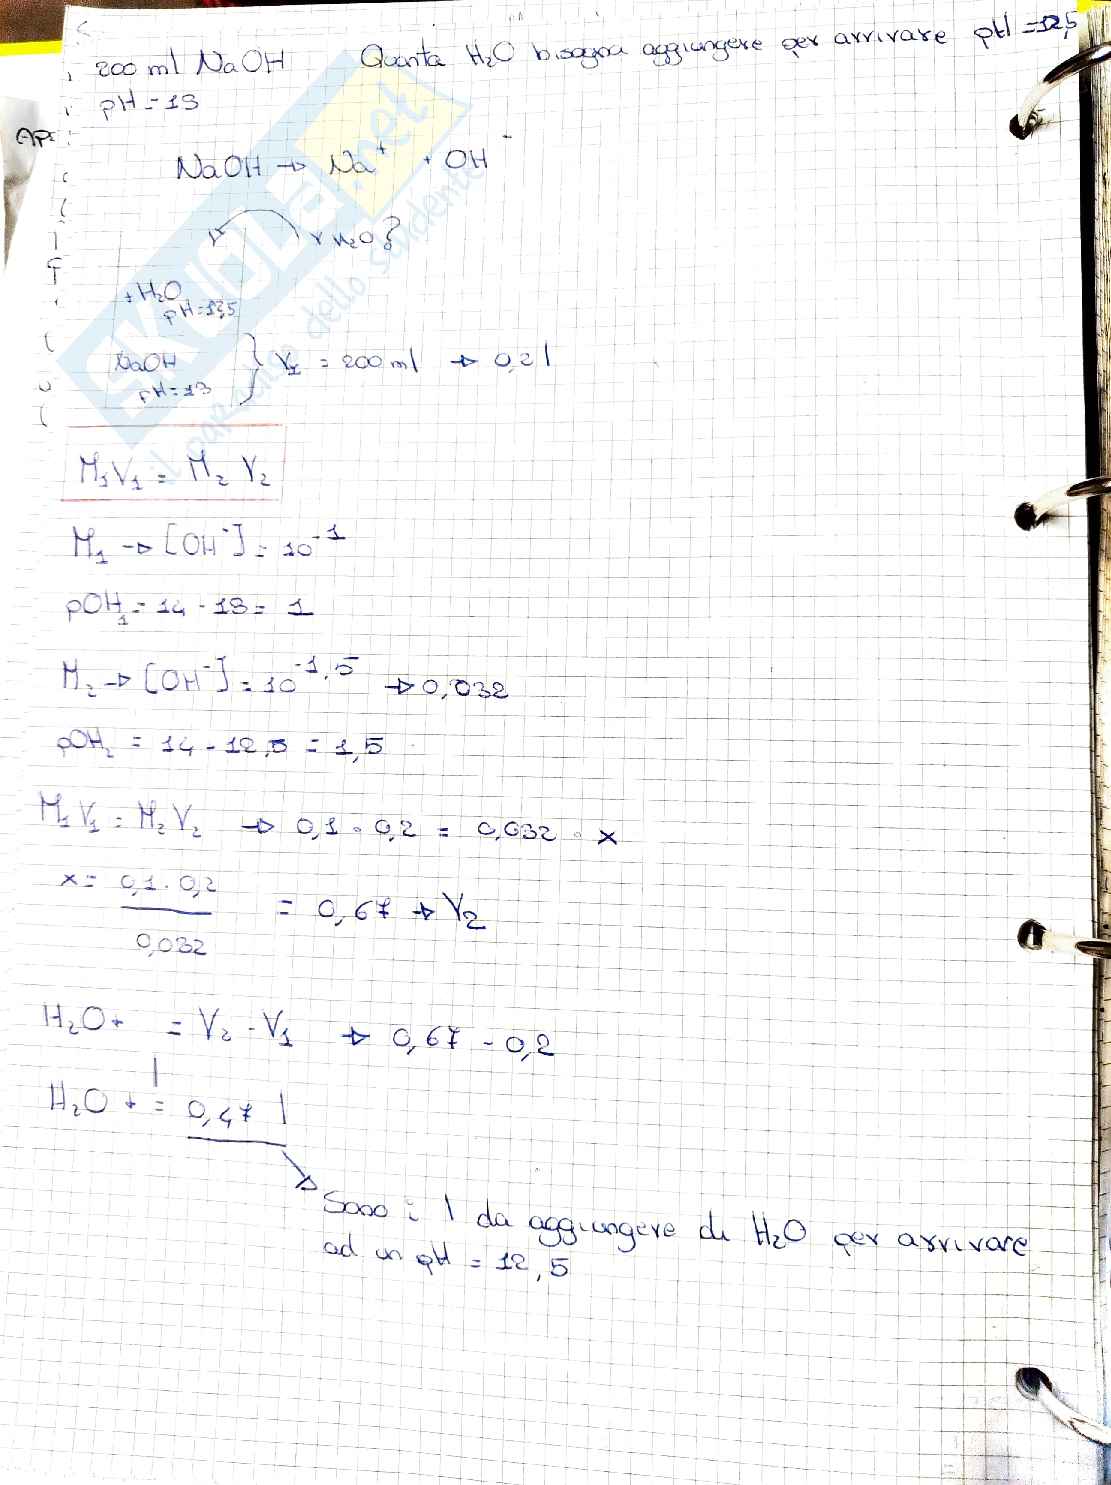 200 ml NaOH Quanta H₂O bisogna aggiungere per arrivare pH = 12,5
pH = 13
NaOH → Na⁺ + OH⁻
V H₂O?
+ H₂O
pH = 12,5
NaOH } V₁ = 200 ml → 0,2 l
pH = 13
M₁V₁ = M₂ V₂
M₁ → [OH⁻] = 10⁻¹
pOH₁ = 14 - 13 = 1
M₂ → [OH⁻] = 10⁻¹,⁵ → 0,032
pOH₂ = 14 - 12,5 = 1,5
M₁V₁ = M₂V₂ → 0,1 · 0,2 = 0,032 · x
x = 0,1 · 0,2 = 0,67 → V₂
0,032
H₂O + = V₂ - V₁ → 0,67 - 0,2
H₂O + = 0,47 l
Sono i l da aggiungere di H₂O per arrivare
ad un pH = 12,5
SKUOLA.net
il paradiso dello studente